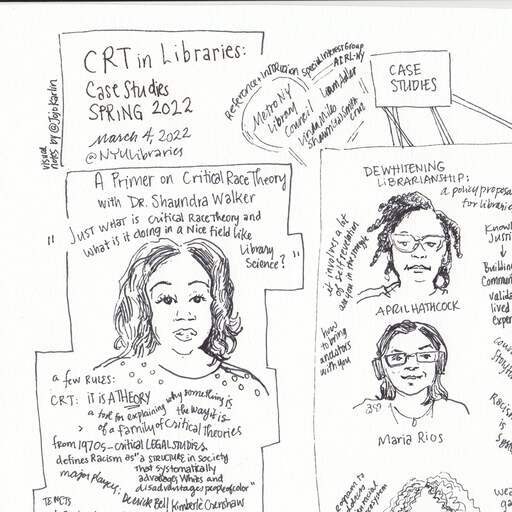 CRT in Libraries:
Case Studies
SPRING 2022
March 4, 2022
@NYULibraries
visual notes by @JojoKarlin
Reference + Instruction Special Interest Group
ACRL-NY
Metro NY
Library
Council
Linda Miles
CASE
STUDIES
A Primer on Critical Race Theory
with Dr. Shaundra Walker
"Just what is critical Race Theory and
what is it doing in a Nice field like
Library
Science?"
a few RULES:
CRT: it is A THEORY
why something is
a tool for explaining the way it is
> of a family of Critical Theories
from 1970s - critical LEGAL STUDIES
defines Racism as "a structure in society
that systematically
advantages Whites and
disadvantages people of color"
major players: Derrick Bell, Kimberle Crenshaw
TENETS
DEWHITENING
LIBRARIANSHIP:
a policy proposa
for librarie
it involves a lot
of self revelation
how
to bring
ancestors
with you
APRIL HATHCOCK
Maria Rios
Knowl
Justi
Building
Commun
valida
lived
exper
Racis
is